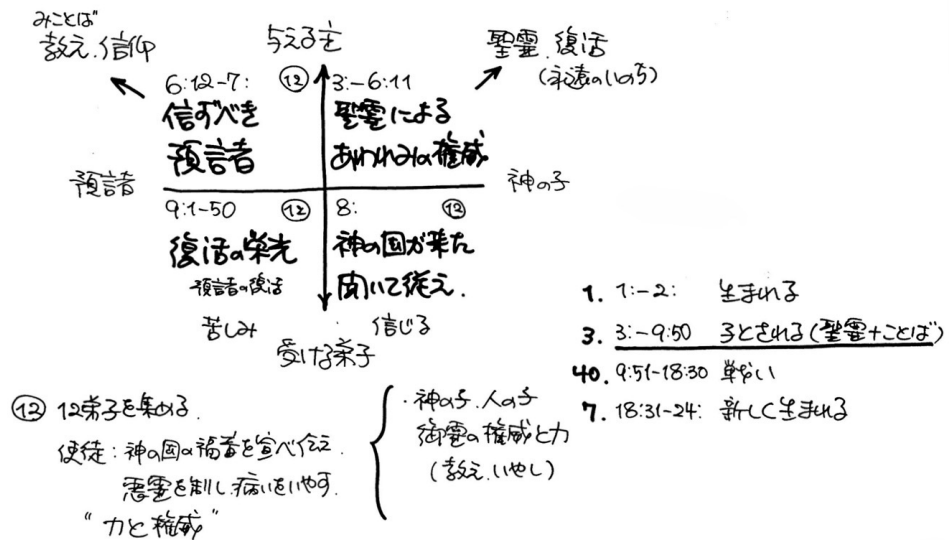 みことば
教え、信仰
与える主
聖霊、復活
(永遠のいのち)
6:12-7: ⑫
信ずべき
預言者
3:-6:11
聖霊による
あわれみの権威
預言者
神の子
9:1-50 ⑫
復活の栄光
預言者の復活
苦しみ
8: ⑫
神の国が来た
聞いて従え.
信じる
受ける弟子
1. 1:-2: 生まれる
3. 3:-9:50 子とされる(聖霊+ことば)
40. 9:51-18:30 戦い
7. 18:31-24: 新しく生まれる
⑫ 12弟子を集める.
使徒:神の国の福音を宣べ伝え.
悪霊を制し.病いをいやす.
"力と権威"
・神の子.人の子
御霊の権威と力
(教え.いやし)